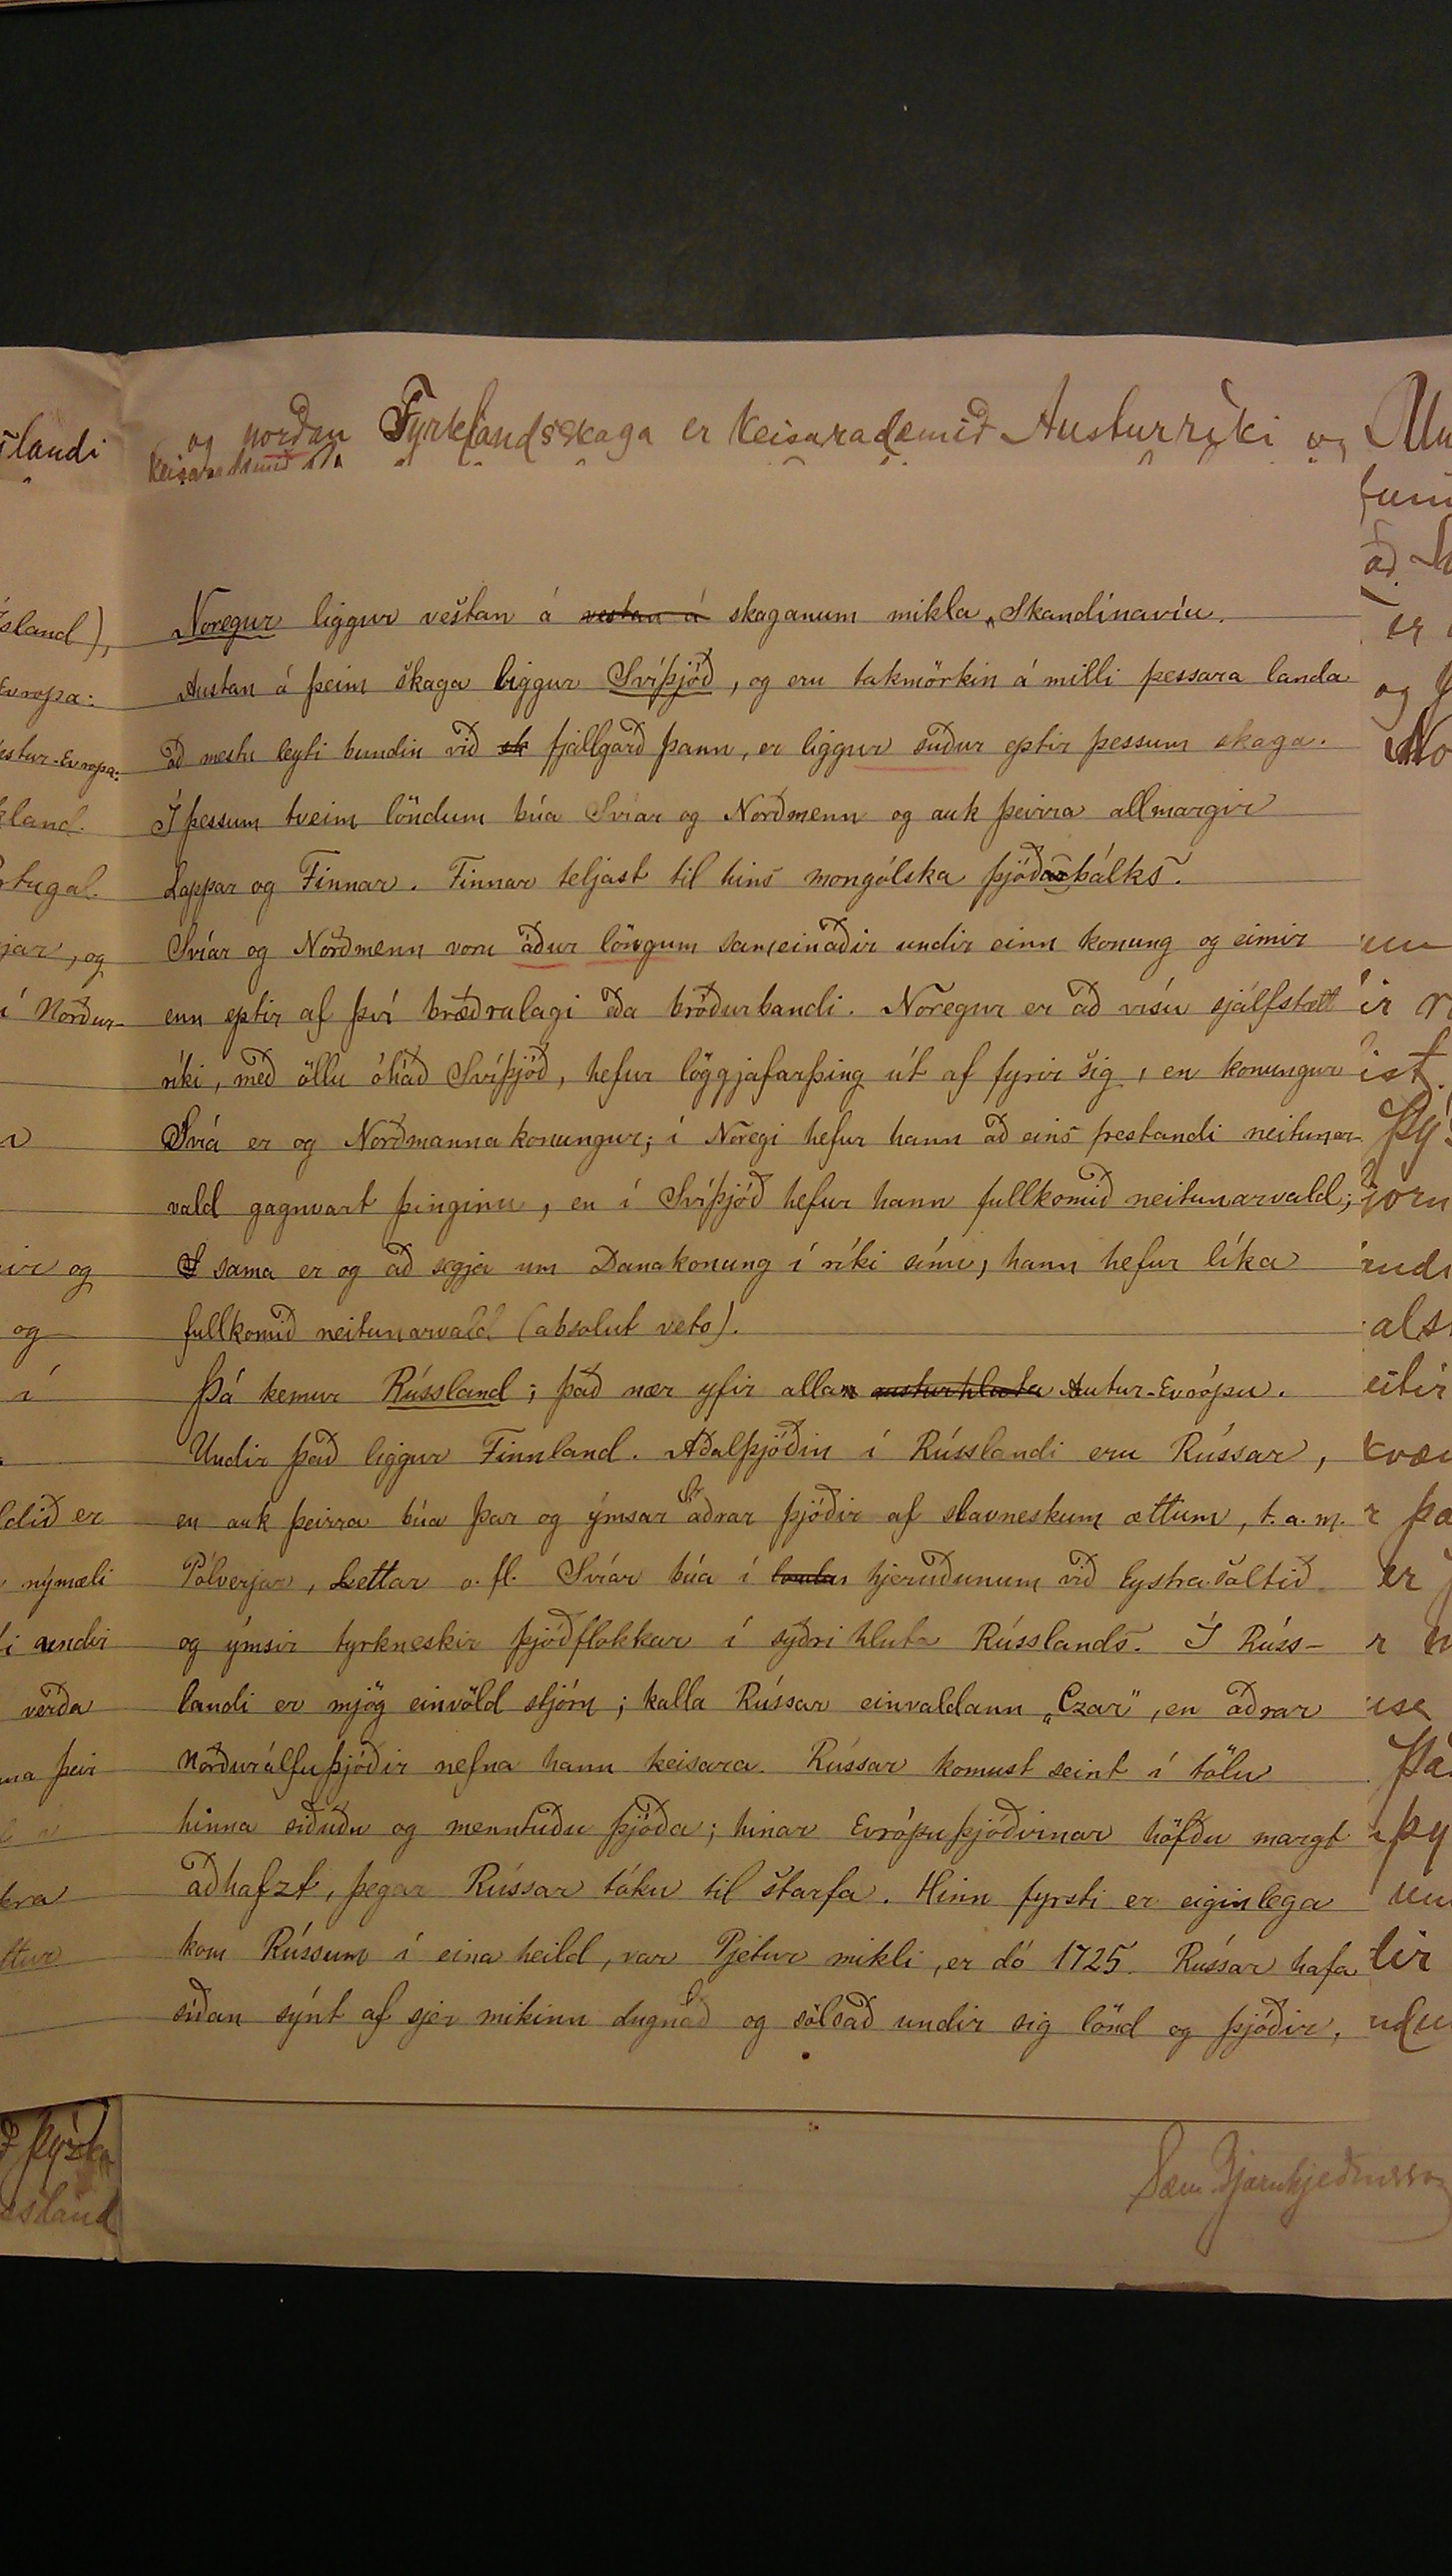 og norðan Tyrklandsskaga er keisaradæmið Austurríki og
keisaradæmið
Noregur liggur vestan á vestan á skaganum mikla, Skandínavíu.
Austan á þeim skaga liggur Svíþjóð, og eru takmörkin á milli þessara landa
að mestu leyti bundin við sk fjallgarð þann, er liggur suður eptir þessum skaga.
Í þessum tveim löndum búa Svíar og Norðmenn og auk þeirra allmargir
Lappar og Finnar. Finnar teljast til hins mongólska þjóðarbálks.
Svíar og Norðmenn voru áður löngum sameinaðir undir einn konung og eimir
enn eptir af því bræðralagi eða bróðurbandi. Noregur er að vísu sjálfstætt
ríki, með öllu óháð Svíþjóð, hefur löggjafarþing út af fyrir sig, en konungur
Svíá er og Norðmannakonungur; í Noregi hefur hann að eins frestandi neitunar-
vald gagnvart þinginu, en í Svíþjóð hefur hann fullkomið neitunarvald;
sama er og að segja um Danakonung í ríki sínu, hann hefur líka
fullkomið neitunarvald (absolut veto).
Þá kemur Rússland; það nær yfir alla austurhluta Autur-Evrópu.
Undir það liggur Finnland. Aðalþjóðin í Rússlandi eru Rússar,
en auk þeirra búa þar og ýmsar aðrar þjóðir af slavneskum ættum, t.a.m.
Pólverjar, Lettar o.fl. Svíar búa í hjeruðunum við Eystrasaltið
og ýmsir tyrkneskir þjóðflokkar í syðri hluta Rússlands. Í Rúss-
landi er mjög einvöld stjórn; kalla Rússar einvaldann „Czar“, en aðrar
Norðurálfuþjóðir nefna hann keisara. Rússar komust seint í tölu
hinna siðuðu og menntuðu þjóða; hinar Evrópuþjóðirnar höfðu margt
aðhafzt, þegar Rússar tóku til starfa. Hinn fyrsti er eiginlega
kom Rússum í eina heild, var Pjetur mikli, er dó 1725. Rússar hafa
síðan sýnt af sjer mikinn dugnað og sölsað undir sig lönd og þjóðir,
Sæm. Bjarnhjeðinsson